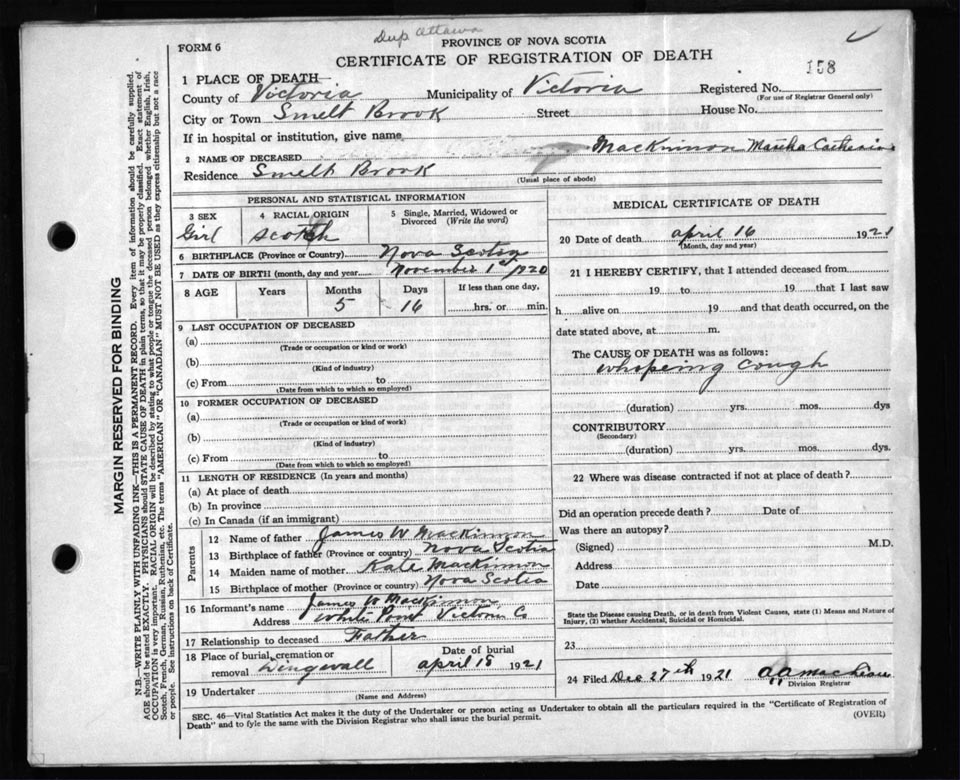 Dup Ottawa
FORM 6
PROVINCE OF NOVA SCOTIA
CERTIFICATE OF REGISTRATION OF DEATH
158
1 PLACE OF DEATH
County of Victoria Municipality of Victoria Registered No.
(For use of Registrar General only)
City or Town Smelt Brook Street House No.
If in hospital or institution, give name
2 NAME OF DECEASED MacKinnon Martha Catherine
Residence Smelt Brook
(Usual place of abode)
PERSONAL AND STATISTICAL INFORMATION
3 SEX 4 RACIAL ORIGIN 5 Single, Married, Widowed or Divorced (Write the word)
Girl Scotch
6 BIRTHPLACE (Province or Country) Nova Scotia
7 DATE OF BIRTH (month, day and year) November 1st 1920
8 AGE Years Months Days If less than one day,
5 16 hrs. or min.
9 LAST OCCUPATION OF DECEASED
(a)
(Trade or occupation or kind or work)
(b)
(Kind of industry)
(c) From to
(Date from which to which so employed)
10 FORMER OCCUPATION OF DECEASED
(a)
(Trade or occupation or kind of work)
(b)
(Kind of industry)
(c) From to
(Date from which to which so employed)
11 LENGTH OF RESIDENCE (In years and months)
(a) At place of death
(b) In province
(c) In Canada (if an immigrant)
Parents
12 Name of father James W MacKinnon
13 Birthplace of father (Province or country) Nova Scotia
14 Maiden name of mother Kate MacKinnon
15 Birthplace of mother (Province or country) Nova Scotia
16 Informant's name James W MacKinnon
Address White Point Victoria Co
17 Relationship to deceased Father
18 Place of burial, cremation or removal Dingwall
Date of burial
April 18 1921
19 Undertaker
(Name and Address)
MEDICAL CERTIFICATE OF DEATH
20 Date of death April 16 1921
(Month, day and year)
21 I HEREBY CERTIFY, that I attended deceased from
19 to 19 that I last saw
h alive on 19 and that death occurred, on the
date stated above, at m.
The CAUSE OF DEATH was as follows:
whoping cough
(duration) yrs. mos. dys
CONTRIBUTORY
(Secondary)
(duration) yrs. mos. dys
22 Where was disease contracted if not at place of death?
Did an operation precede death? Date of
Was there an autopsy?
(Signed) M.D.
Address
Date
State the Disease causing Death, or in death from Violent Causes, state (1) Means and Nature of
Injury, (2) whether Accidental, Suicidal or Homicidal.
23
24 Filed Dec 27th 1921
Division Registrar
SEC. 46—Vital Statistics Act makes it the duty of the Undertaker or person acting as Undertaker to obtain all the particulars required in the "Certificate of Registration of
Death" and to fyle the same with the Division Registrar who shall issue the burial permit.
(OVER)
MARGIN RESERVED FOR BINDING
N.B.—WRITE PLAINLY WITH UNFADING INK—THIS IS A PERMANENT RECORD. Every item of information should be carefully supplied.
AGE should be stated EXACTLY. PHYSICIANS should STATE CAUSE OF DEATH in plain terms, so that it may be properly classified. Exact statement of
OCCUPATION is very important. RACIAL ORIGIN will be described by stating to what people or tongue the deceased person belonged whether English, Irish,
Scotch, French, German, Russian, Ruthenian, etc. The terms "AMERICAN" OR "CANADIAN" MUST NOT BE USED as they express citizenship but not a race
or people. See instructions on back of Certificate.